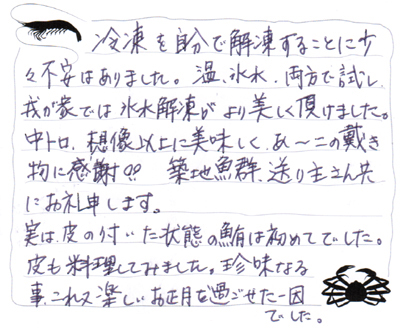 冷凍を自分で解凍することに少
々不安はありました。温、氷水、両方で試し、
我が家では氷水解凍がより美しく頂けました。
中トロ、想像以上に美味しく、あ〜この戴き
物に感謝!! 築地魚群、送り主さん共
にお礼申します。
実は、皮の付いた状態の鮪は初めてでした。
皮も料理してみました。珍味なる
事、これ又楽しいお正月を過ごせた一因
でした。